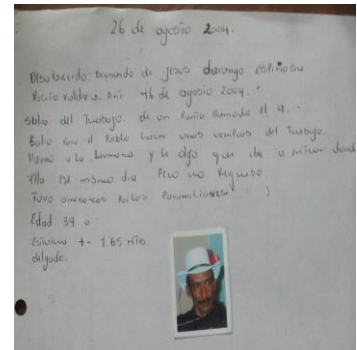 26 de agosto 2004.
Desaparecido: de Jesus durango espinosa
Puerto valdivia. Ant. 16 de agosto 2004.
Salio del Trabajo. de un llamado el 9.
Bajo para el Pueblo hacer unas compras del Trabajo.
llamo a la hermana y le dijo que iba a donde
ella ese mismo dia Pero no Regreso.
Tuvo amenazas Paramilitares
Edad. 39
Estatura +- 1.65 MTO.
delgado.